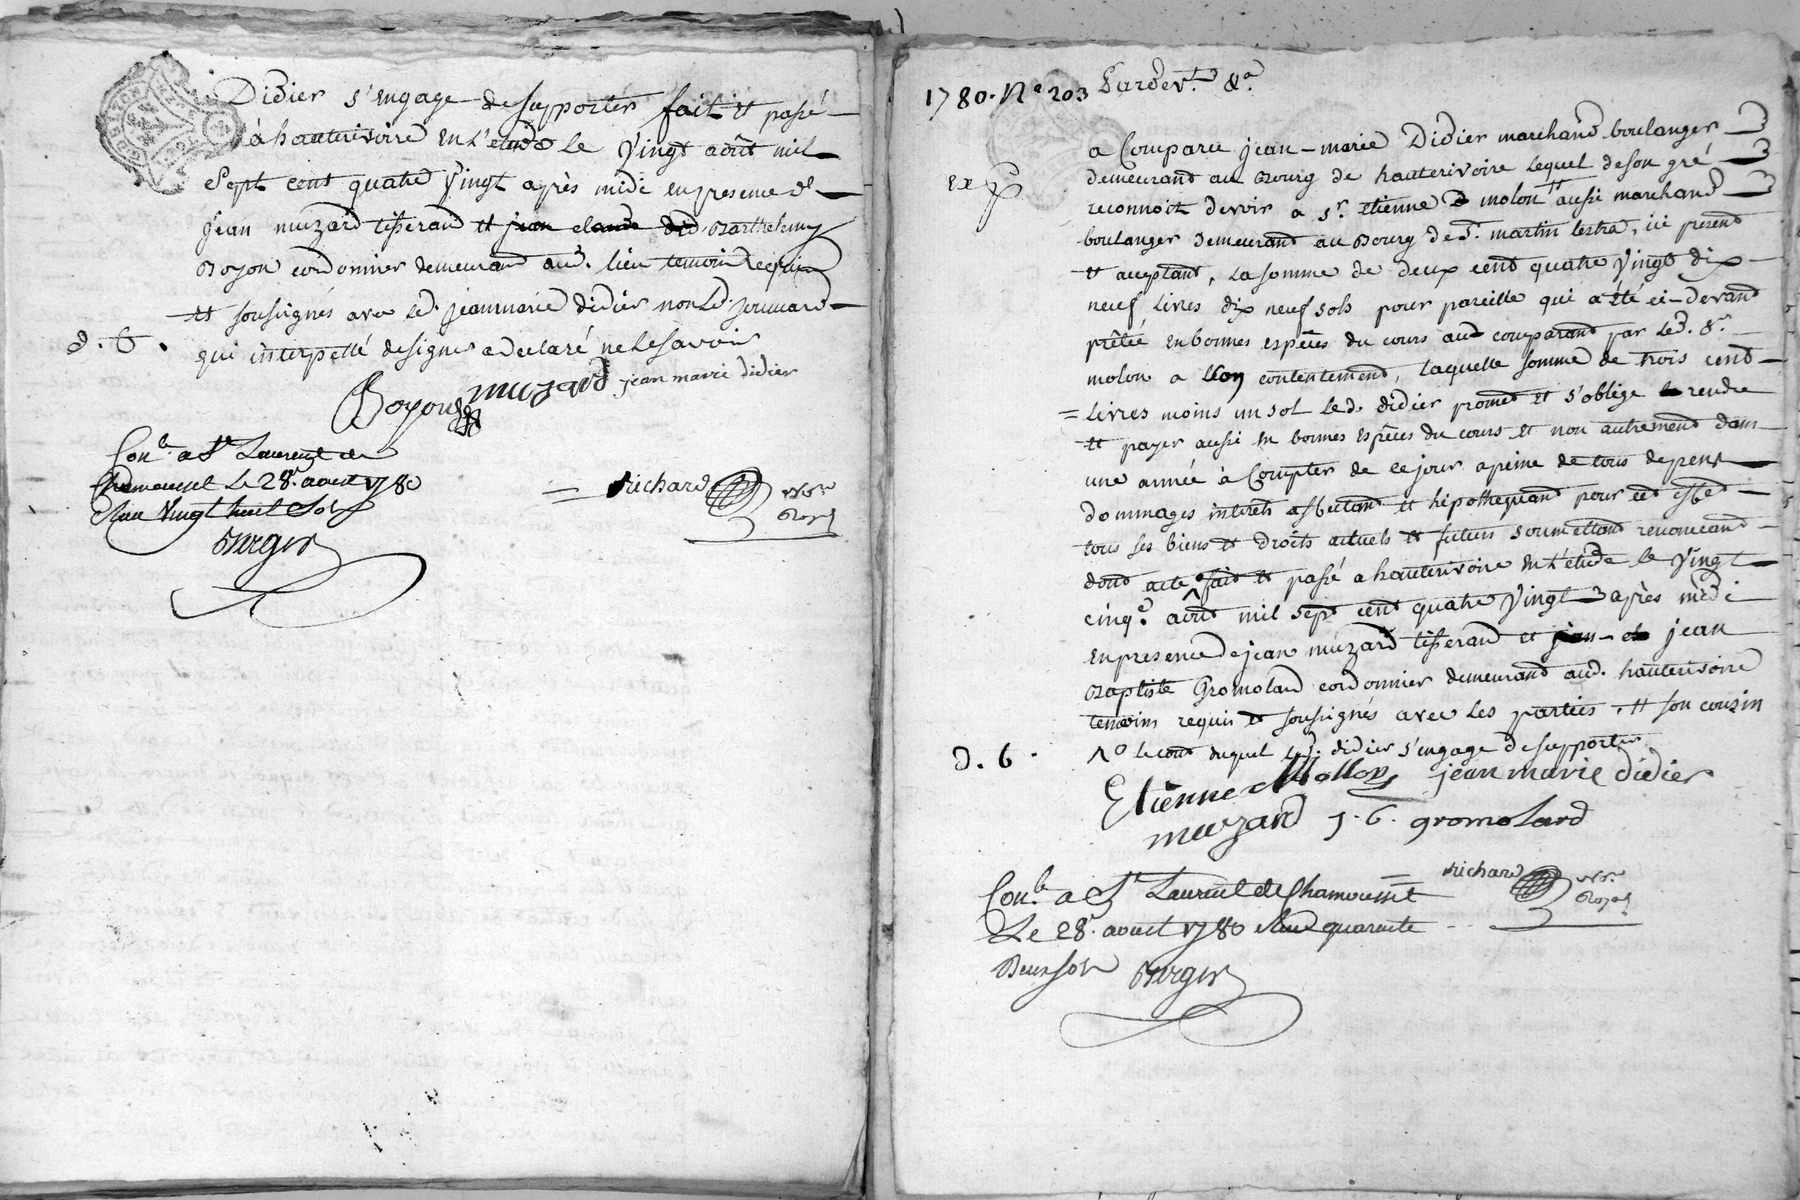 Didier s'engage de supporter fait et passé
à hauterivoire en l'etude le vingt août mil
sept cent quatre vingt après midi en presence de
jean muzard tisserand et jean claude did Barthelemy
Boyon cordonnier demeurant aud. lieu temoins requis
et soussignés avec led. jean marie didier non led. jouuard
d. 6.
qui interpellé de signer a declaré ne le savoir
Boyon muzard jean marie didier
Con.le a St Laurent de
Chamousset le 28. aoust 1780
Reçu vingt huit sols
Berger
= Richard No.re
Royal
1780. N° 203 Pardev.t &a
a Comparu jean-marie Didier marchand boulanger
Ex
demeurant au Bourg de hauterivoire lequel de son gré
reconnoit devoir a sr. etienne molon aussi marchand
boulanger demeurant au Bourg de St. martin lestra, ici present
et acceptant, la somme de deux cent quatre vingt dix
neuf livres dix neuf sols pour pareille qui a été ci-devant
prêtée en bonnes espèces du cours aud comparant par led. Sr.
molon a son contentement, laquelle somme de trois cent
= livres moins un sol led. didier promet et s'oblige rendre
et payer aussi en bonnes espèces du cours et non autrement dans
une année à Compter de ce jour a peine de tous depens
dommages interets affectant et hipothequant pour cet effet
tous ses biens et droits actuels et futurs soumettant renonceant
dont acte fait et passé a hauterivoire en l'etude le vingt
cinq.e août mil sept cent quatre vingt après midi
en presence de jean muzard tisserand et jean
Baptiste Gromolard cordonnier demeurant aud. hauterivoire
temoins requis et soussignés avec les parties. et son cousin
d. 6.
^o le tout duquel led. didier s'engage de supporter
Etienne Mollon jean marie didier
muzard j. b. gromolard
= Richard No.re
Royal
Con.le a St Laurent de Chamousset
Le 28. aoust 1780 Reçu quarante
Deux sols Berger